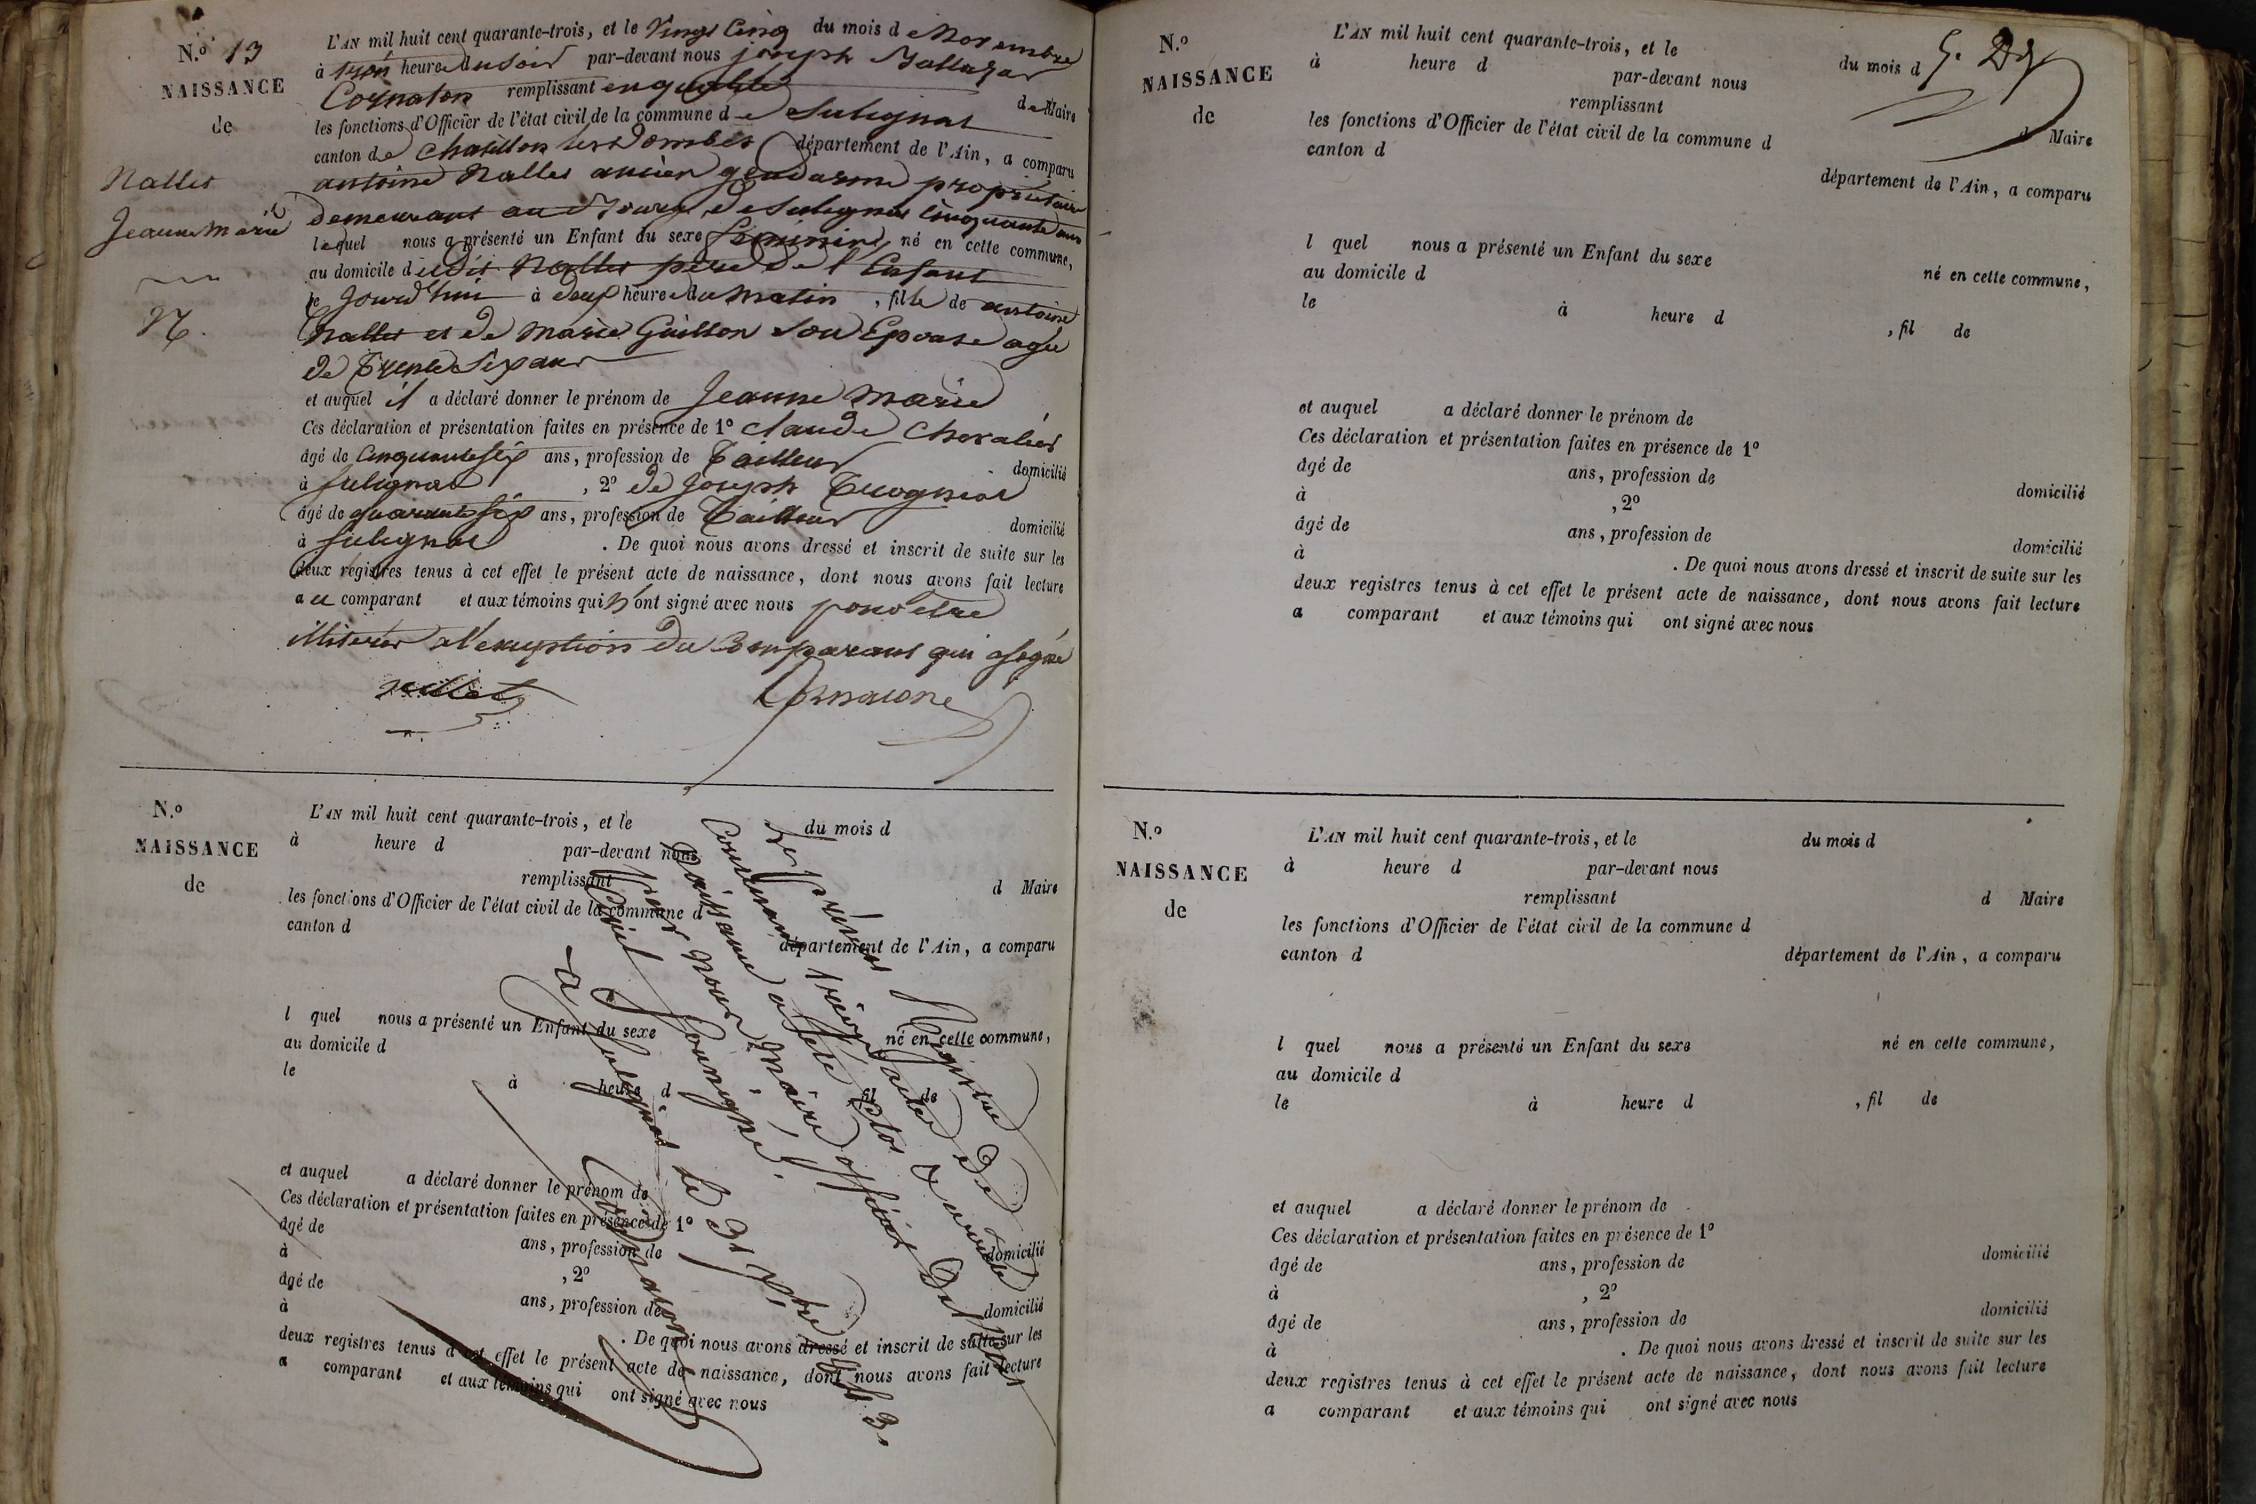 N.º 13
NAISSANCE
de
Nallet
Jeanne Marie
N.
L'AN mil huit cent quarante-trois, et le Vingt Cinq du mois de Novembre
à trois heures du Soir par-devant nous joseph Baltazar
Cornaton remplissant en qualité de Maire
les fonctions d'Officier de l'état civil de la commune de Sulignat
canton de Chatillon les Dombes département de l'Ain, a comparu
antoine Nallet ancien gendarme propriétaire
demeurant au Bourg de Sulignat Cinquante ans
lequel nous a présenté un Enfant du sexe feminin, né en cette commune,
au domicile dudit Nallet père de l'Enfant
le jourd'hui à deux heures du matin, fille de antoine
Nallet et de Marie Guillon Son Epouse agée
de Trente Six ans
et auquel il a déclaré donner le prénom de Jeanne Marie
Ces déclaration et présentation faites en présence de 1º Claude Chevalier
âgé de Cinquante six ans, profession de Tailleur domicilié
à Sulignat, 2º de Joseph
âgé de quarante six ans, profession de Tailleur domicilié
à Sulignat. De quoi nous avons dressé et inscrit de suite sur les
deux registres tenus à cet effet le présent acte de naissance, dont nous avons fait lecture
au comparant et aux témoins qui n'ont signé avec nous pour être
illiterer a l'exception du Comparant qui a signé
nallet Cornaton
N.º
NAISSANCE
de
L'AN mil huit cent quarante-trois, et le du mois d
à heure d par-devant nous
remplissant d Maire
les fonctions d'Officier de l'état civil de la commune d
canton d département de l'Ain, a comparu
l quel nous a présenté un Enfant du sexe né en cette commune,
au domicile d
le à heure d , fil de
et auquel a déclaré donner le prénom de
Ces déclaration et présentation faites en présence de 1º
âgé de ans, profession de domicilié
à , 2º
âgé de ans, profession de domicilié
à . De quoi nous avons dressé et inscrit de suite sur les
deux registres tenus à cet effet le présent acte de naissance, dont nous avons fait lecture
a comparant et aux témoins qui ont signé avec nous
Le présent Registre de
Contenant treize actes de
Naissance a été Clos & arrêté
Par Nous Maire officier De l'état
Civil Soussigné.
a Sulignat le 31 Xbre 1843.
Cornaton
N.º
NAISSANCE
de
L'AN mil huit cent quarante-trois, et le du mois d
à heure d par-devant nous
remplissant d Maire
les fonctions d'Officier de l'état civil de la commune d
canton d département de l'Ain, a comparu
l quel nous a présenté un Enfant du sexe né en cette commune,
au domicile d
le à heure d , fil de
et auquel a déclaré donner le prénom de
Ces déclaration et présentation faites en présence de 1º
âgé de ans, profession de domicilié
à , 2º
âgé de ans, profession de domicilié
à . De quoi nous avons dressé et inscrit de suite sur les
deux registres tenus à cet effet le présent acte de naissance, dont nous avons fait lecture
a comparant et aux témoins qui ont signé avec nous
N.º
NAISSANCE
de
L'AN mil huit cent quarante-trois, et le du mois d
à heure d par-devant nous
remplissant d Maire
les fonctions d'Officier de l'état civil de la commune d
canton d département de l'Ain, a comparu
l quel nous a présenté un Enfant du sexe né en cette commune,
au domicile d
le à heure d , fil de
et auquel a déclaré donner le prénom de
Ces déclaration et présentation faites en présence de 1º
âgé de ans, profession de domicilié
à , 2º
âgé de ans, profession de domicilié
à . De quoi nous avons dressé et inscrit de suite sur les
deux registres tenus à cet effet le présent acte de naissance, dont nous avons fait lecture
a comparant et aux témoins qui ont signé avec nous